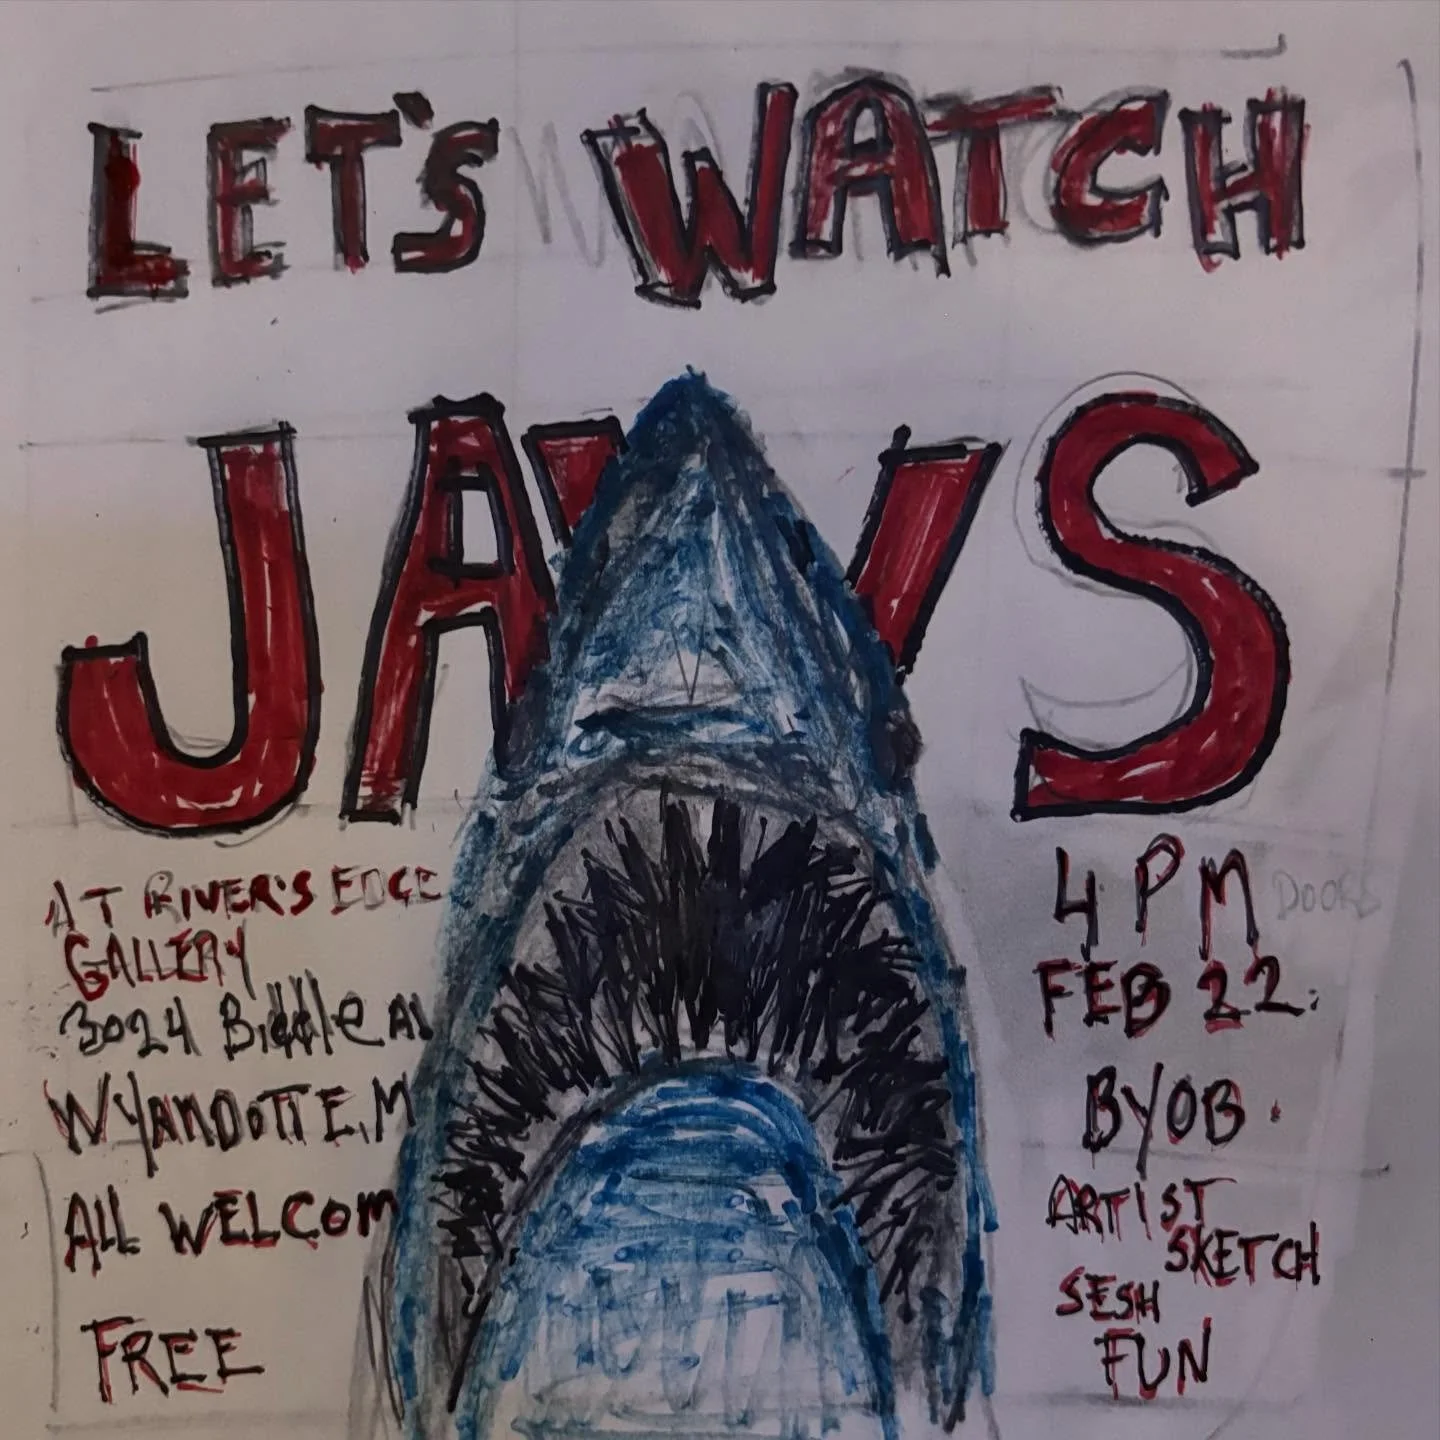 LET'S WATCH
JAWS
AT RIVER'S EDGE
GALLERY
3024 Biddle AV
WYANDOTTE, M
ALL WELCOM
FREE
4 PM DOORS
FEB 22.
BYOB.
ARTIST
SKETCH
SESH
FUN